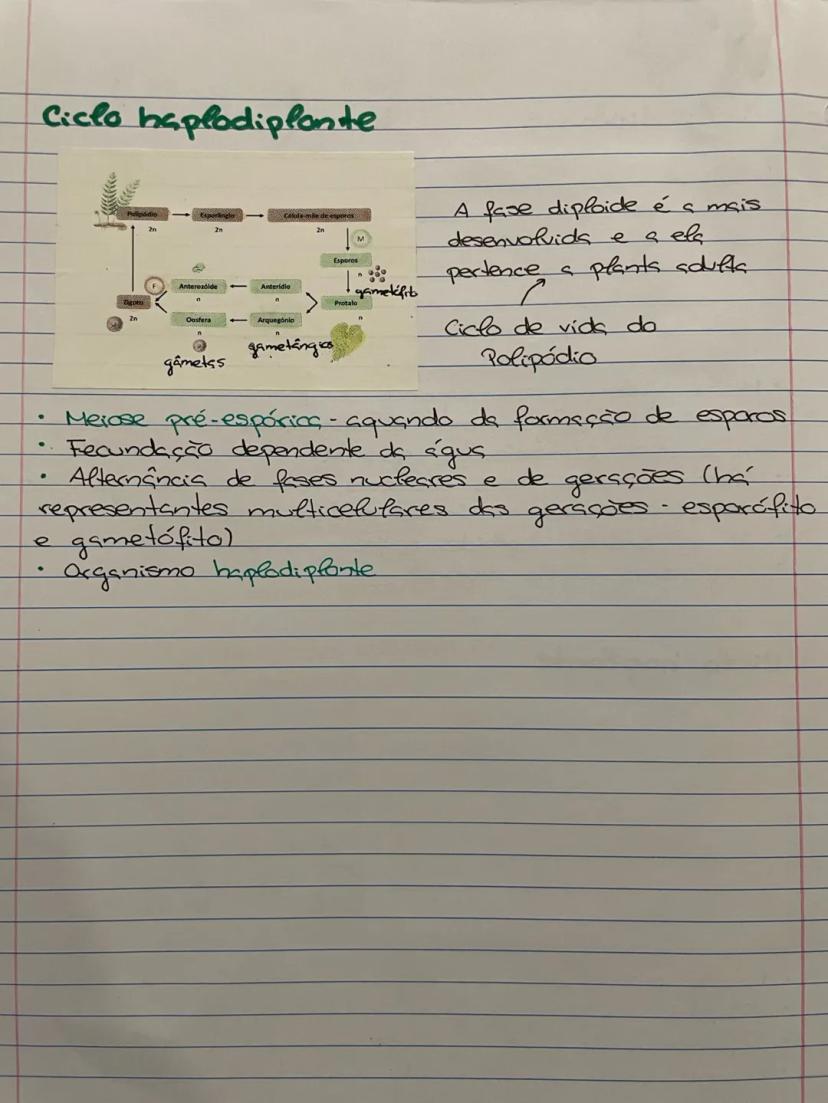 Ciclo haplodiplonte
Polipódio
2n
Esporângio
2n
Célula-mãe de esporos
2n
M
Esporos
n
gametófito
Protalo
n
Anterídio
n
Anterozóide
n
Arquegónio
n
gametângios
Oosfera
n
gâmetas
F
Zigoto
2n
A fase diploide é a mais
desenvolvida e a ela
pertence a planta adulta
Ciclo de vida do
Polipódio
• Meiose pré-espórica - aquando da formação de esporos
• Fecundação dependente da água
• Alternância de fases nucleares e de gerações (há
representantes multicelulares das gerações - esporófito
e gametófito)
• Organismo haplodiplonte